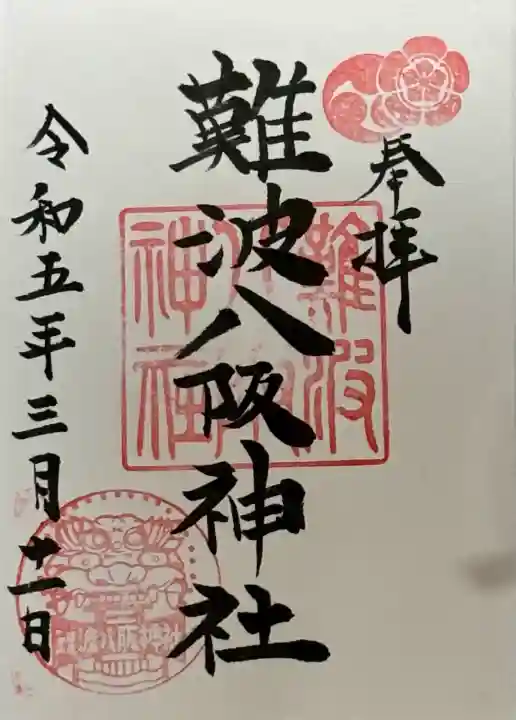 奉拝
難波八阪神社
令和五年三月十一日
難波
八阪
神社
難波八阪神社